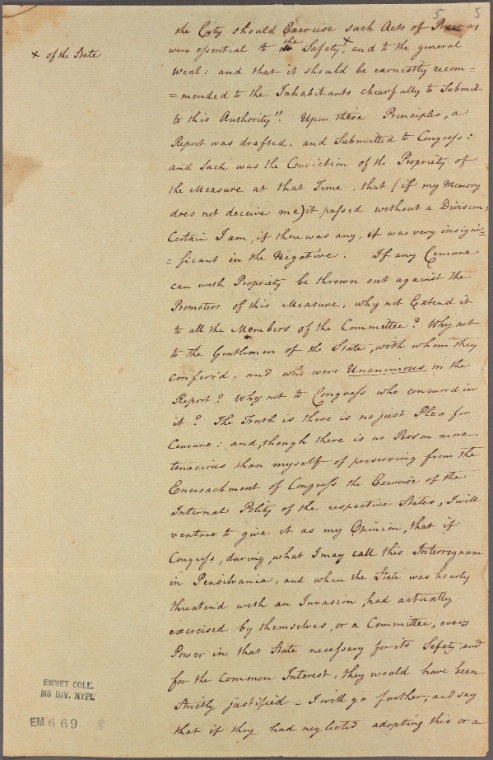 5 5
the City should Exercise such Acts of Power as
were essential to the Safety, x and to the general
x of the State
Weal: and that it should be earnestly recom=
=mended to the Inhabitants chearfully to Submit
to this Authority". Upon these Principles, a
Report was drafted, and Submitted to Congress:
and Such was the Conviction of the Propriety of
the Measure at that Time, that (if my Memory
does not deceive me) it passed without a Division;
Certain I am, if there was any, it was very insigni=
=ficant in the Negative. If any Censure
can with Propriety be thrown out against the
Promoters of this Measure, why not Extend it
to all the Members of the Committee? Why not
to the Gentlemen of the State, with whom they
confer'd, and who were Unanimous in the
Report? Why not to Congress who concurred in
it? The Truth is there is no just Plea for
Censure: and, though there is no Person more
tenacious than myself of preserving from the
Encroachment of Congress the Exercise of the
Internal Polity of the respective States, I will
venture to give it as my Opinion, that if
Congress, during, what I may call this Interregnum
in Pensilvania, and when the State was hourly
threatend with an Invasion, had actually
exercised by themselves, or a Committee, every
Power in that State necessary for its Safety, and
for the Common Interest, they would have been
Strictly justified – I will go further, and say
that if they had neglected adopting this or a
EMMET COLL.
MS DIV. NYPL
EM 669